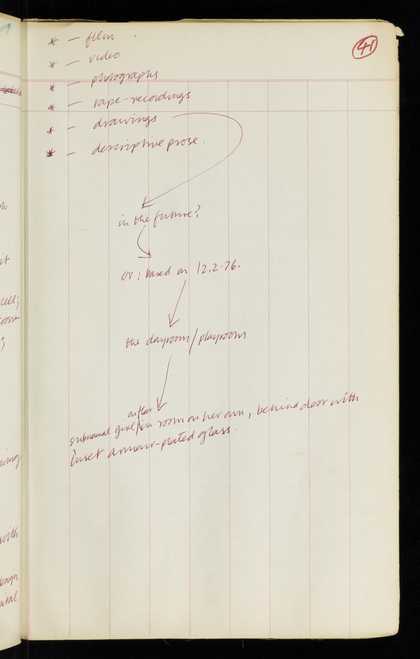 41
* — film .
* — video
* — photographs
* — tape-recordings
* — drawings
* — descriptive prose.
in the future?
or: based on 12.2.76.
the dayroom/playroom
subnormal girl/in room on her own, behind door with
inset armour-plated glass.